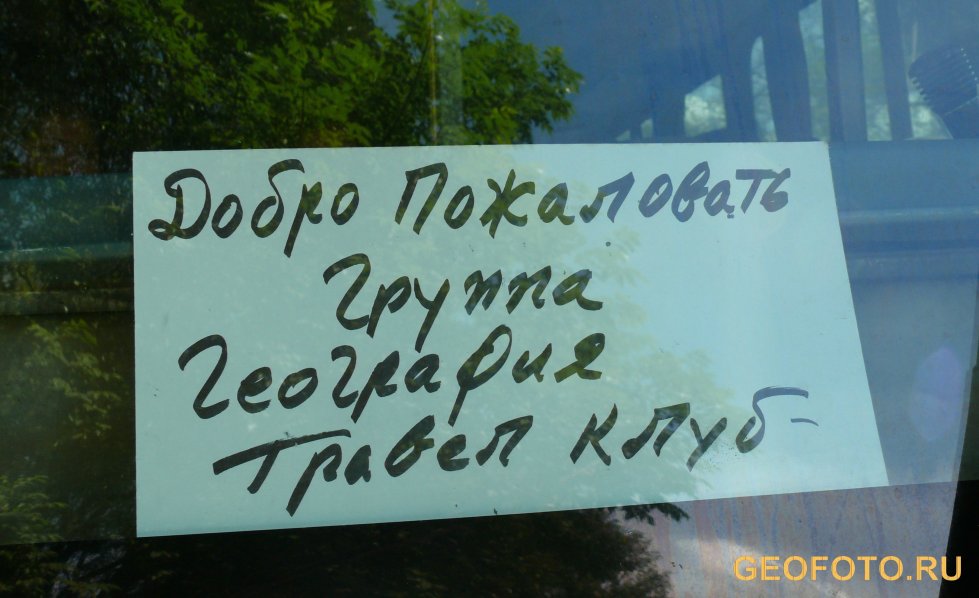 Добро Пожаловать
Группа
География
Травел клуб-
GEOFOTO.RU